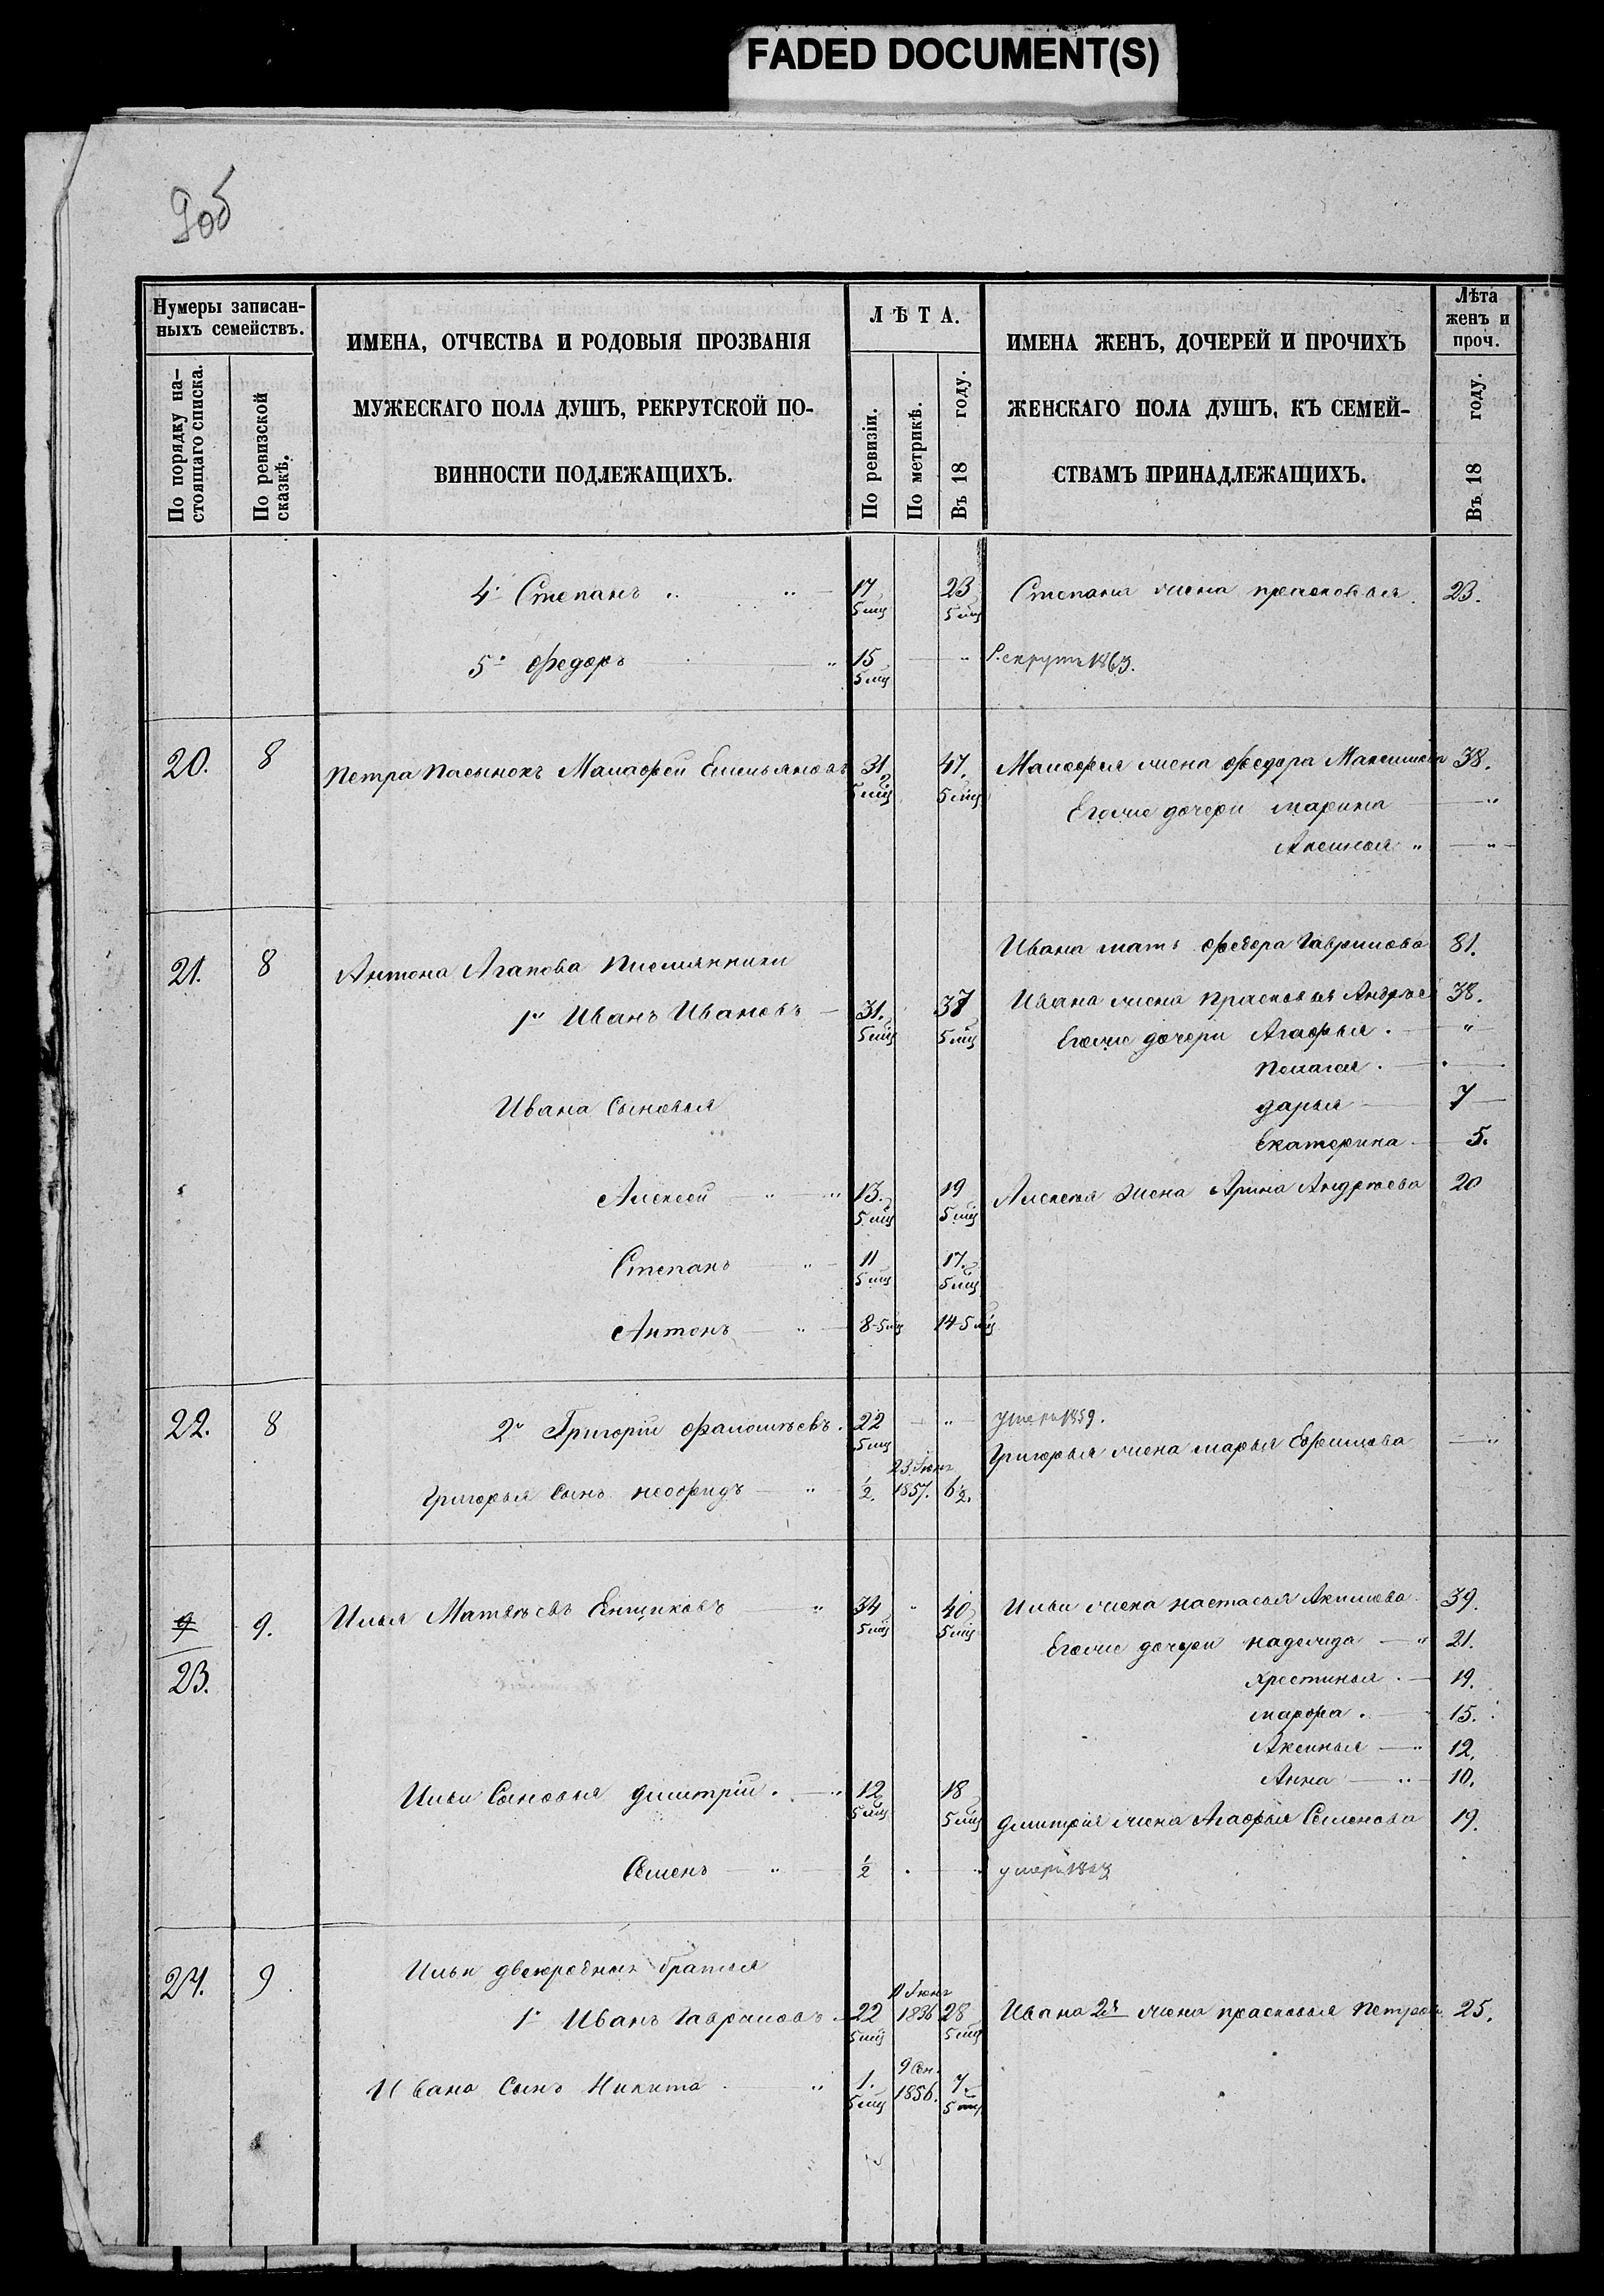 FADED DOCUMENT(S)
9об
Нумеры записан-
ныхъ семействъ.
По порядку на-
стоящаго списка.
По ревизской
сказкѣ.
ИМЕНА, ОТЧЕСТВА И РОДОВЫЯ ПРОЗВАНІЯ
МУЖЕСКАГО ПОЛА ДУШЪ, РЕКРУТСКОЙ ПО-
ВИННОСТИ ПОДЛЕЖАЩИХЪ.
ЛѢТА.
По ревизіи.
По метрикѣ.
Въ 18 году.
ИМЕНА ЖЕНЪ, ДОЧЕРЕЙ И ПРОЧИХЪ
ЖЕНСКАГО ПОЛА ДУШЪ, КЪ СЕМЕЙ-
СТВАМЪ ПРИНАДЛЕЖАЩИХЪ.
Лѣта
женъ и
проч.
Въ 18 году.
4. Степанъ 17 23 Степана жена прасковья 23.
5 мц 5 мц
5. Федоръ 15 Рекрутъ 1863.
5 мц
20. 8 Петра Пасынокъ Малафей Емельяновъ 31 47. Малафея жена федора Максимова 38.
5 мц 5 мц
Его же дочери марина
Аксинья
Ивана мать федора Гаврилова 81.
21. 8 Антона Агапова Племянники
1й Иванъ Ивановъ 31. 37 Ивана жена Прасковья Андрѣе 38.
5 мц 5 мц
Его же дочери Агафья
Пелагея
Ивана Сыновья дарья 7
Екатерина 5.
Алексей 13. 19 Алексея жена Арина Андрѣева 20
5 мц 5 мц
Степанъ 11 17.
5 мц 5 мц
Антонъ 8-5 мц 14-5 мц
22. 8 2й Григорій фалолѣевъ. 22 умеръ 1859.
5 мц
Григорья жена марья Ефимова
23 Июня
Григорья Сынъ неофидъ ½. 1857. 6½.
9 9. Илья Матвѣевъ Енщиковъ 34 40 Ильи жена настасья Акимова 39.
5 мц 5 мц
Его же дочери надежда 21.
23. Хрестинья 19.
марфа 15.
Аксинья 12.
Анна 10.
Ильи Сыновья дмитрій. 12 18
5 мц 5 мц
дмитрія жена Агафья Семенова 19.
Семенъ ½ умеръ
24. 9 Ильи двоюродныя братья
11 Июня
1й Иванъ Гавриловъ 22 1836 28 Ивана 2я жена прасковья Петров 25.
5 мц 5 мц
9 Сен.
Ивана Сынъ Никита 1. 1856. 7.
5 мц 5 мц